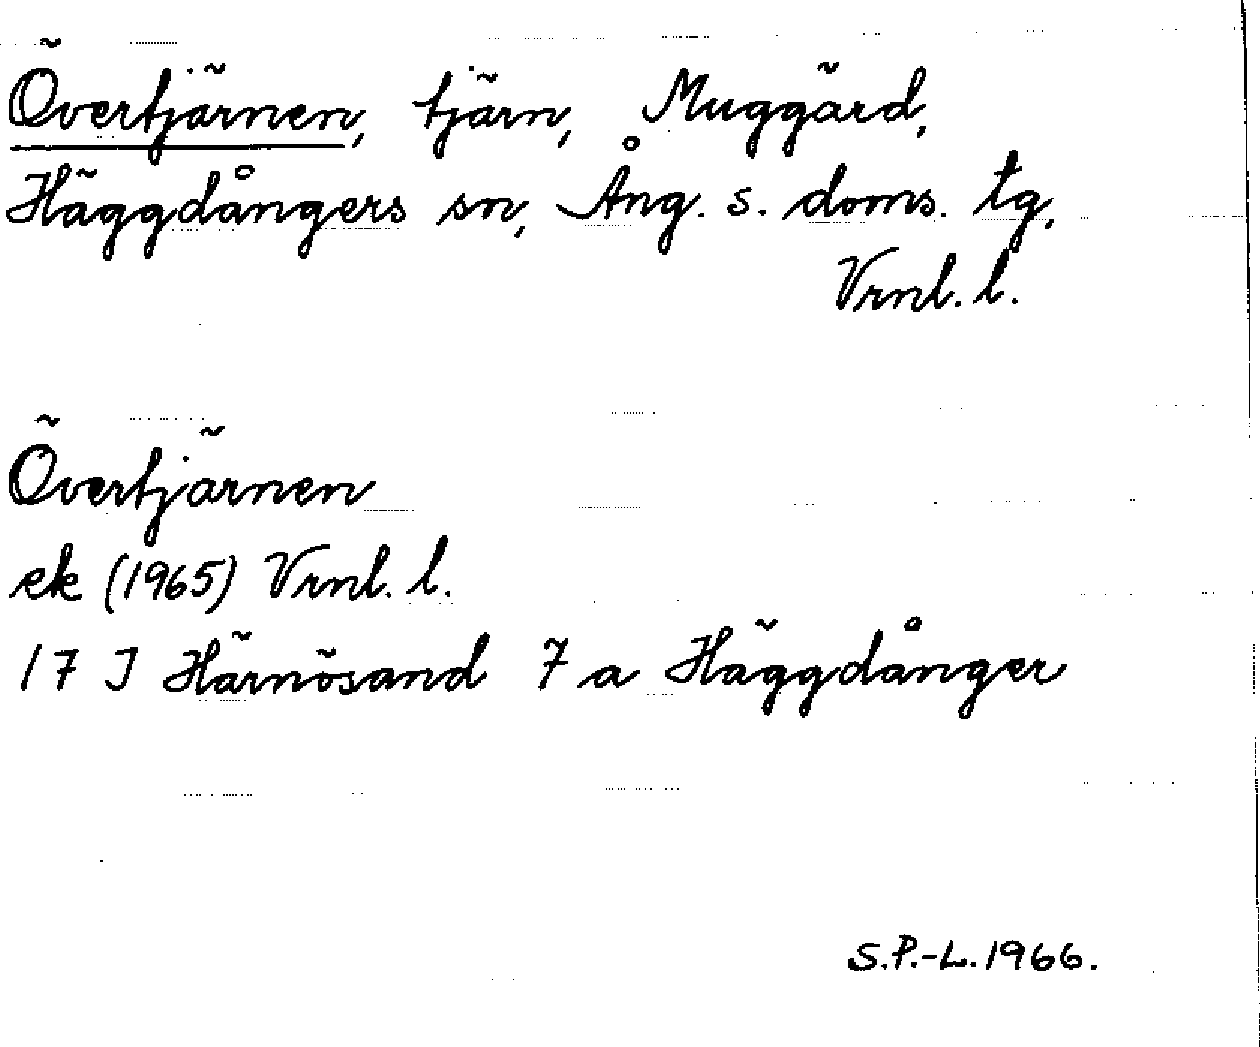 Övertjärnen, tjärn, Muggärd,
Häggdångers sn, Ång. s. doms. tg,
Vrnl. l.
Övertjärnen
ek (1965) Vrnl. l.
17 J Härnösand 7 a Häggdånger
S.P.-L. 1966.